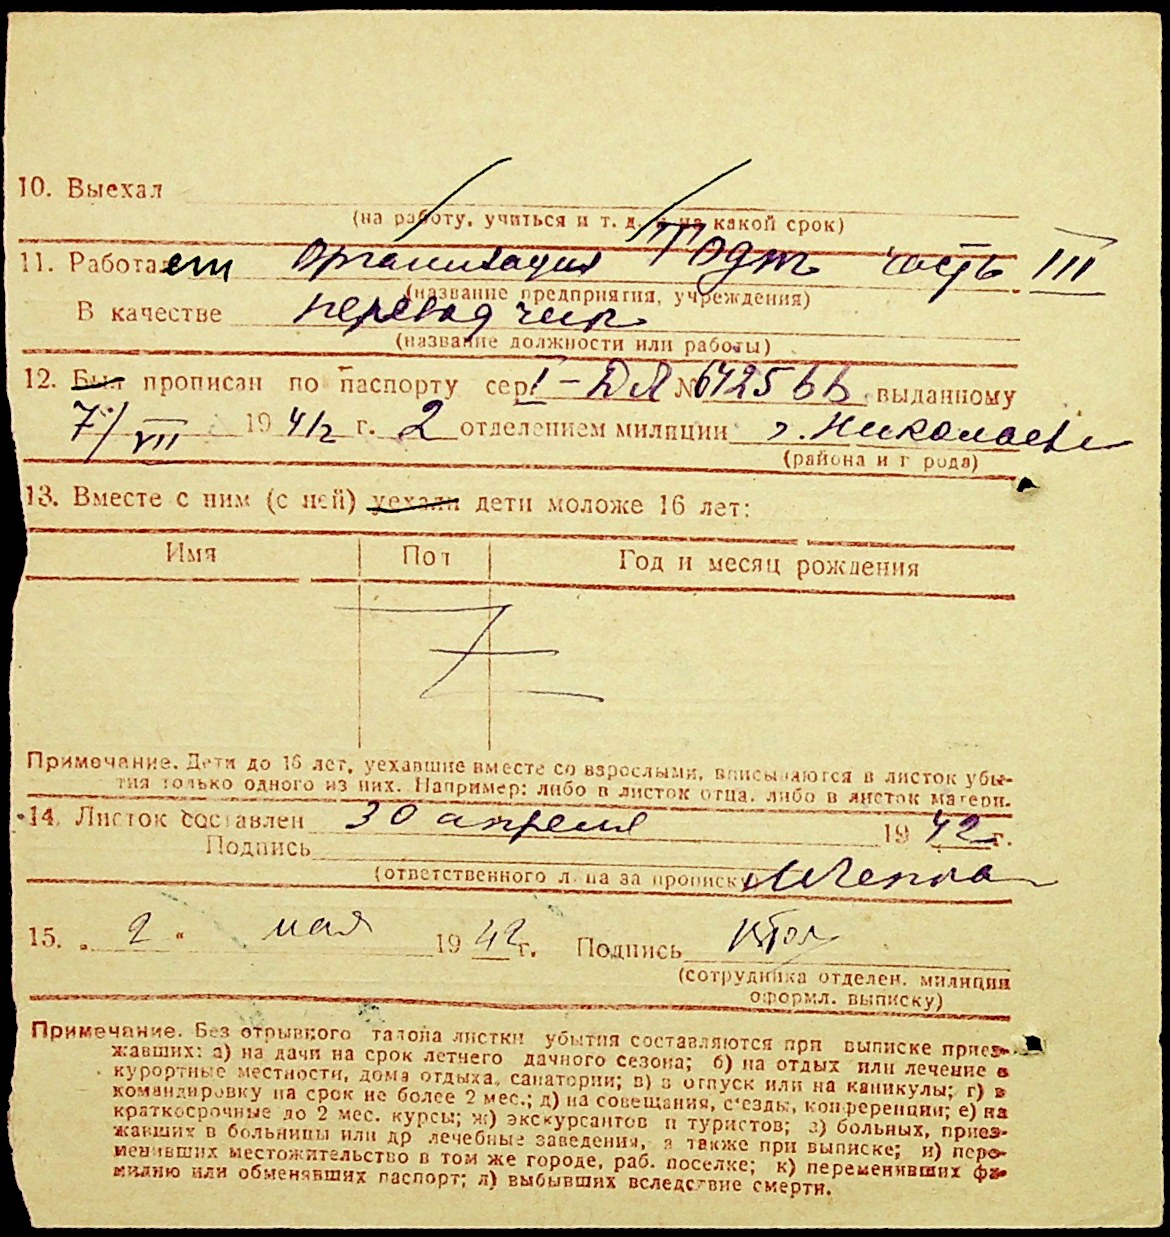 10. Выехал
(на работу, учиться и т. д. и на какой срок)
11. Работает организация Тодт часть III
(название предприятия, учреждения)
В качестве переводчик
(название должности или работы)
12. Был прописан по паспорту сер. I-ДЛ № 642566 выданному
7/VII 1941 г. 2 отделением милиции г. Николаев
(района и города)
13. Вместе с ним (с ней) уехали дети моложе 16 лет:
Имя Пол Год и месяц рождения
Примечание. Дети до 16 лет, уехавшие вместе со взрослыми, вписываются в листок убы-
тия только одного из них. Например: либо в листок отца, либо в листок матери.
14. Листок составлен 30 апреля 1942 г.
Подпись
(ответственного лица за прописку)
15. „2“ мая 1942 г. Подпись
(сотрудника отделен. милиции
оформл. выписку)
Примечание. Без отрывного талона листки убытия составляются при выписке приез-
жавших: а) на дачи на срок летнего дачного сезона; б) на отдых или лечение в
курортные местности, дома отдыха, санатории; в) в отпуск или на каникулы; г) в
командировку на срок не более 2 мес.; д) на совещания, съезды, конференции; е) на
краткосрочные до 2 мес. курсы; ж) экскурсантов и туристов; з) больных, приез-
жавших в больницы или др лечебные заведения, а также при выписке; и) пере-
менивших местожительство в том же городе, раб. поселке; к) переменивших фа-
милию или обменявших паспорт; л) выбывших вследствие смерти.